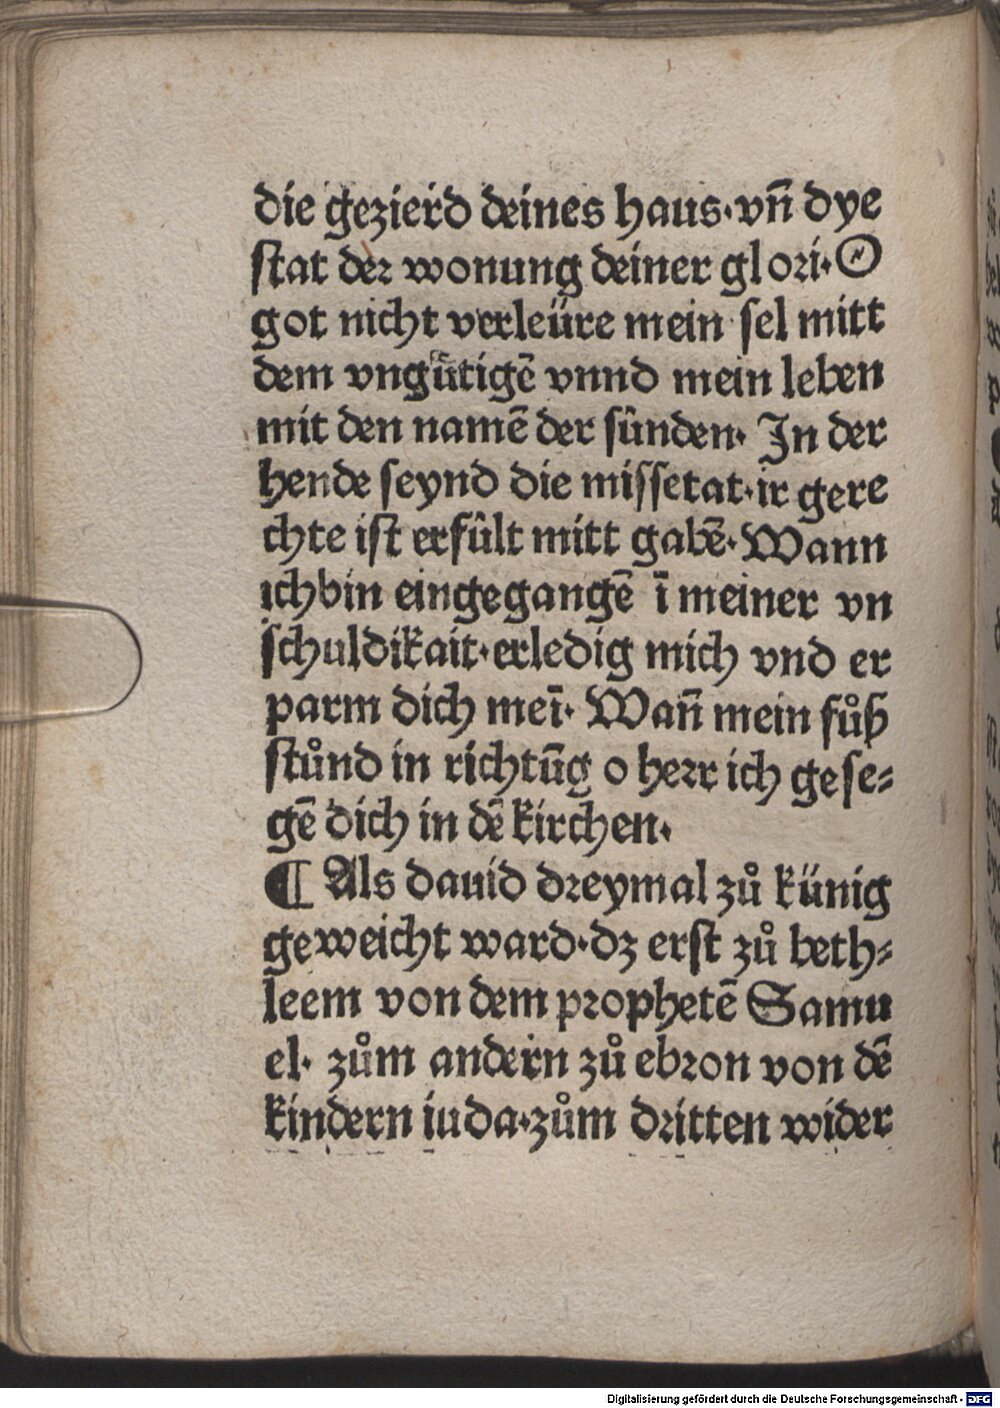 die gezierd deines haus·vn̄ dye
stat der wonung deiner glori·O
got nicht verleüre mein sel mitt
dem vngůtigē vnnd mein leben
mit den namē der sünden· In der
hende seynd die missetat·ir gere
chte ist erfült mitt gabē·Wann
ichbin eingegangē ī meiner vn
schuldikait·erledig mich vnd er
parm dich meī· Wan̄ mein fůß
stůnd in richtūg o herr ich gese⸗
gē dich in dē kirchen·
¶ Als dauid dreymal zů künig
geweicht ward·dz erst zů beth⸗
leem von dem prophetē Samu
el· zům andern zů ebron von dē
kindern iuda·zům dritten wider
Digitalisierung gefördert durch die Deutsche Forschungsgemeinschaft - DFG